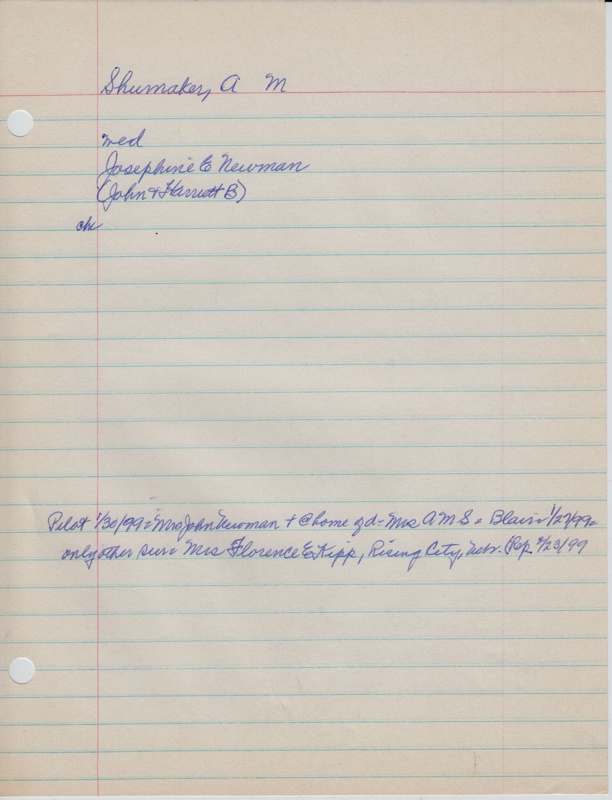 Shumaker, A M
wed
Josephine E Newman
(John + Harriett B)
ch
Pilot 1/30/99 = Mrs John Newman + @ home of d = Mrs A M S = Blair = 1/27/99 =
only other surv = Mrs Florence E Kipp, Rising City, Nebr. (Rep. /23/99